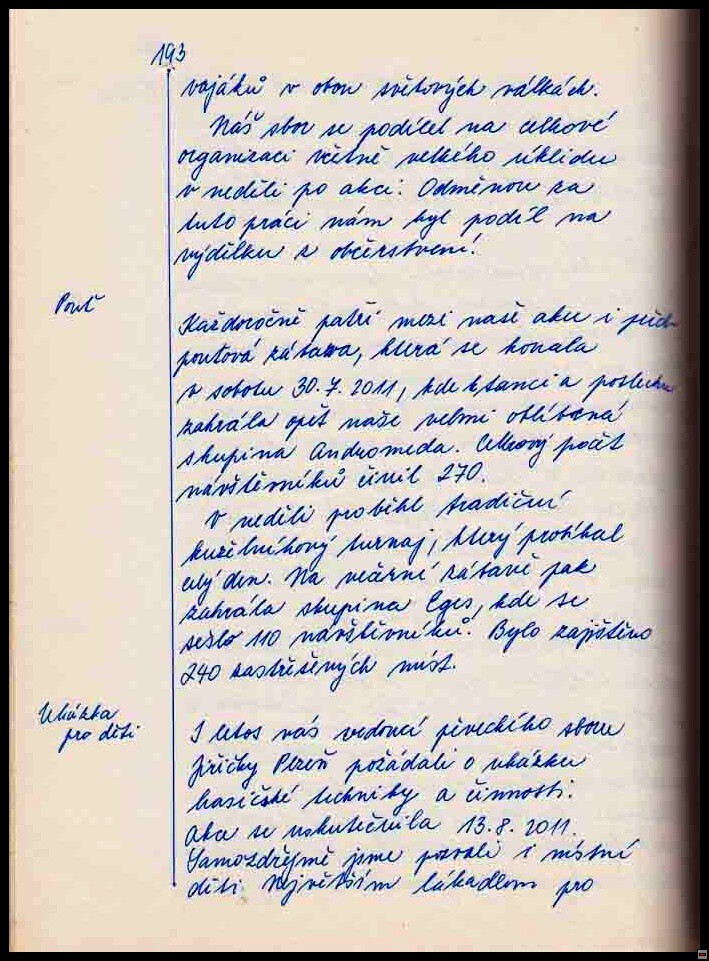 193
vojáků v obou světových válkách.
Náš sbor se podílel na celkové
organizaci včetně velkého úklidu
v neděli po akci. Odměnou za
tuto práci nám byl podíl na
výdělku z občerstvení.
Pouť
Každoročně patří mezi naše akce i
pouťová zábava, která se konala
v sobotu 30.7.2011, kde k tanci a poslechu
zahrála opět naše velmi oblíbená
skupina Andromeda. Celkový počet
návštěvníků činil 270.
V neděli proběhl tradiční
kuželníkový turnaj, který probíhal
celý den. Na večerní zábavě pak
zahrála skupina Eges, kde se
sešlo 110 návštěvníků. Bylo zajištěno
240 zastřešených míst.
Ukázka
pro děti
I letos nás vedoucí pěveckého sboru
Jiřičky Plzeň požádali o ukázku
hasičské techniky a činnosti.
Akce se uskutečnila 13.8.2011.
Samozdřejmě jsme pozvali i místní
děti. Největším lákadlem pro